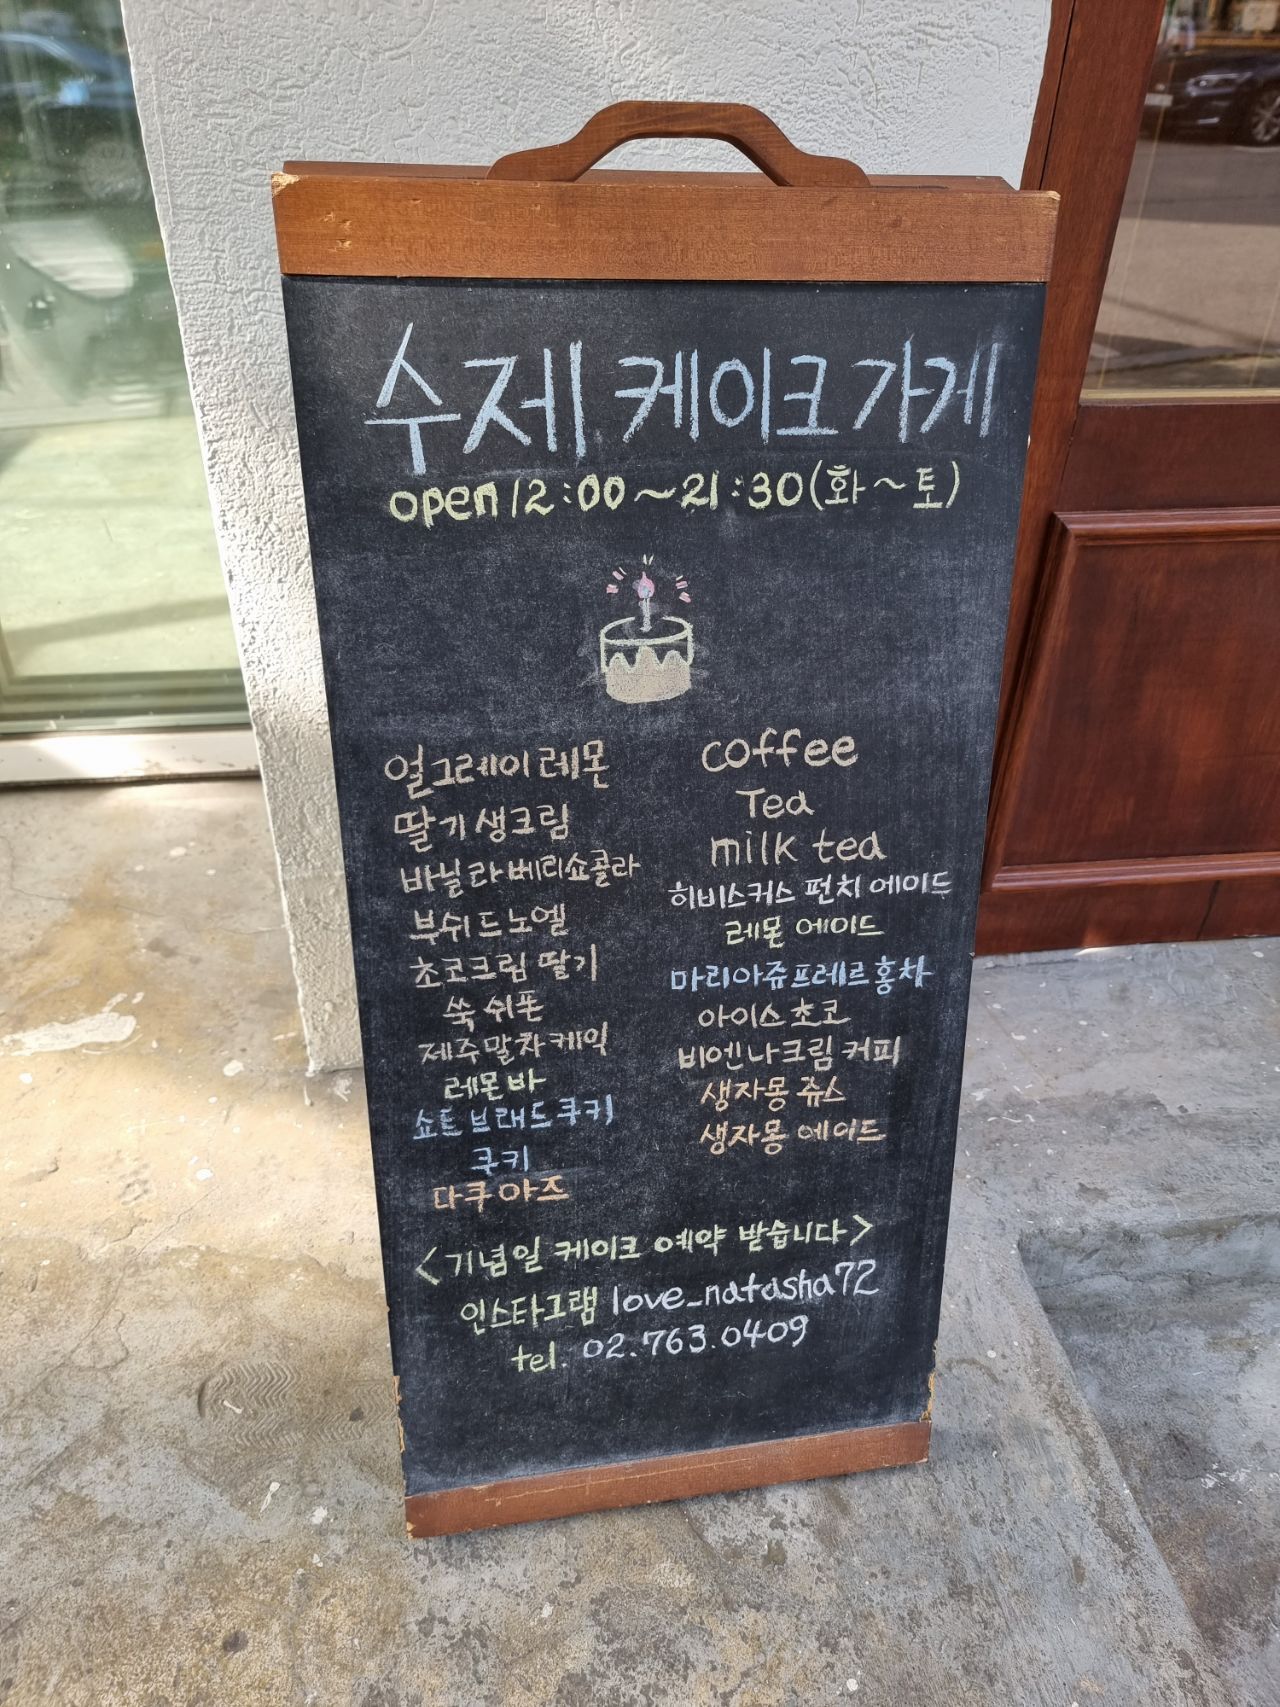 수제 케이크 가게
open 12:00~21:30(화~토)
얼그레이 레몬
딸기 생크림
바닐라 베리쇼콜라
부쉬드노엘
초코크림 딸기
쑥 쉬폰
제주말차케익
레몬 바
쇼트브래드쿠키
쿠키
다쿠아즈
coffee
Tea
milk tea
히비스커스 펀치 에이드
레몬 에이드
마리아쥬프레르 홍차
아이스초코
비엔나크림 커피
생자몽 쥬스
생자몽 에이드
<기념일 케이크 예약 받습니다>
인스타그램 love_natasha72
tel. 02.763.0409